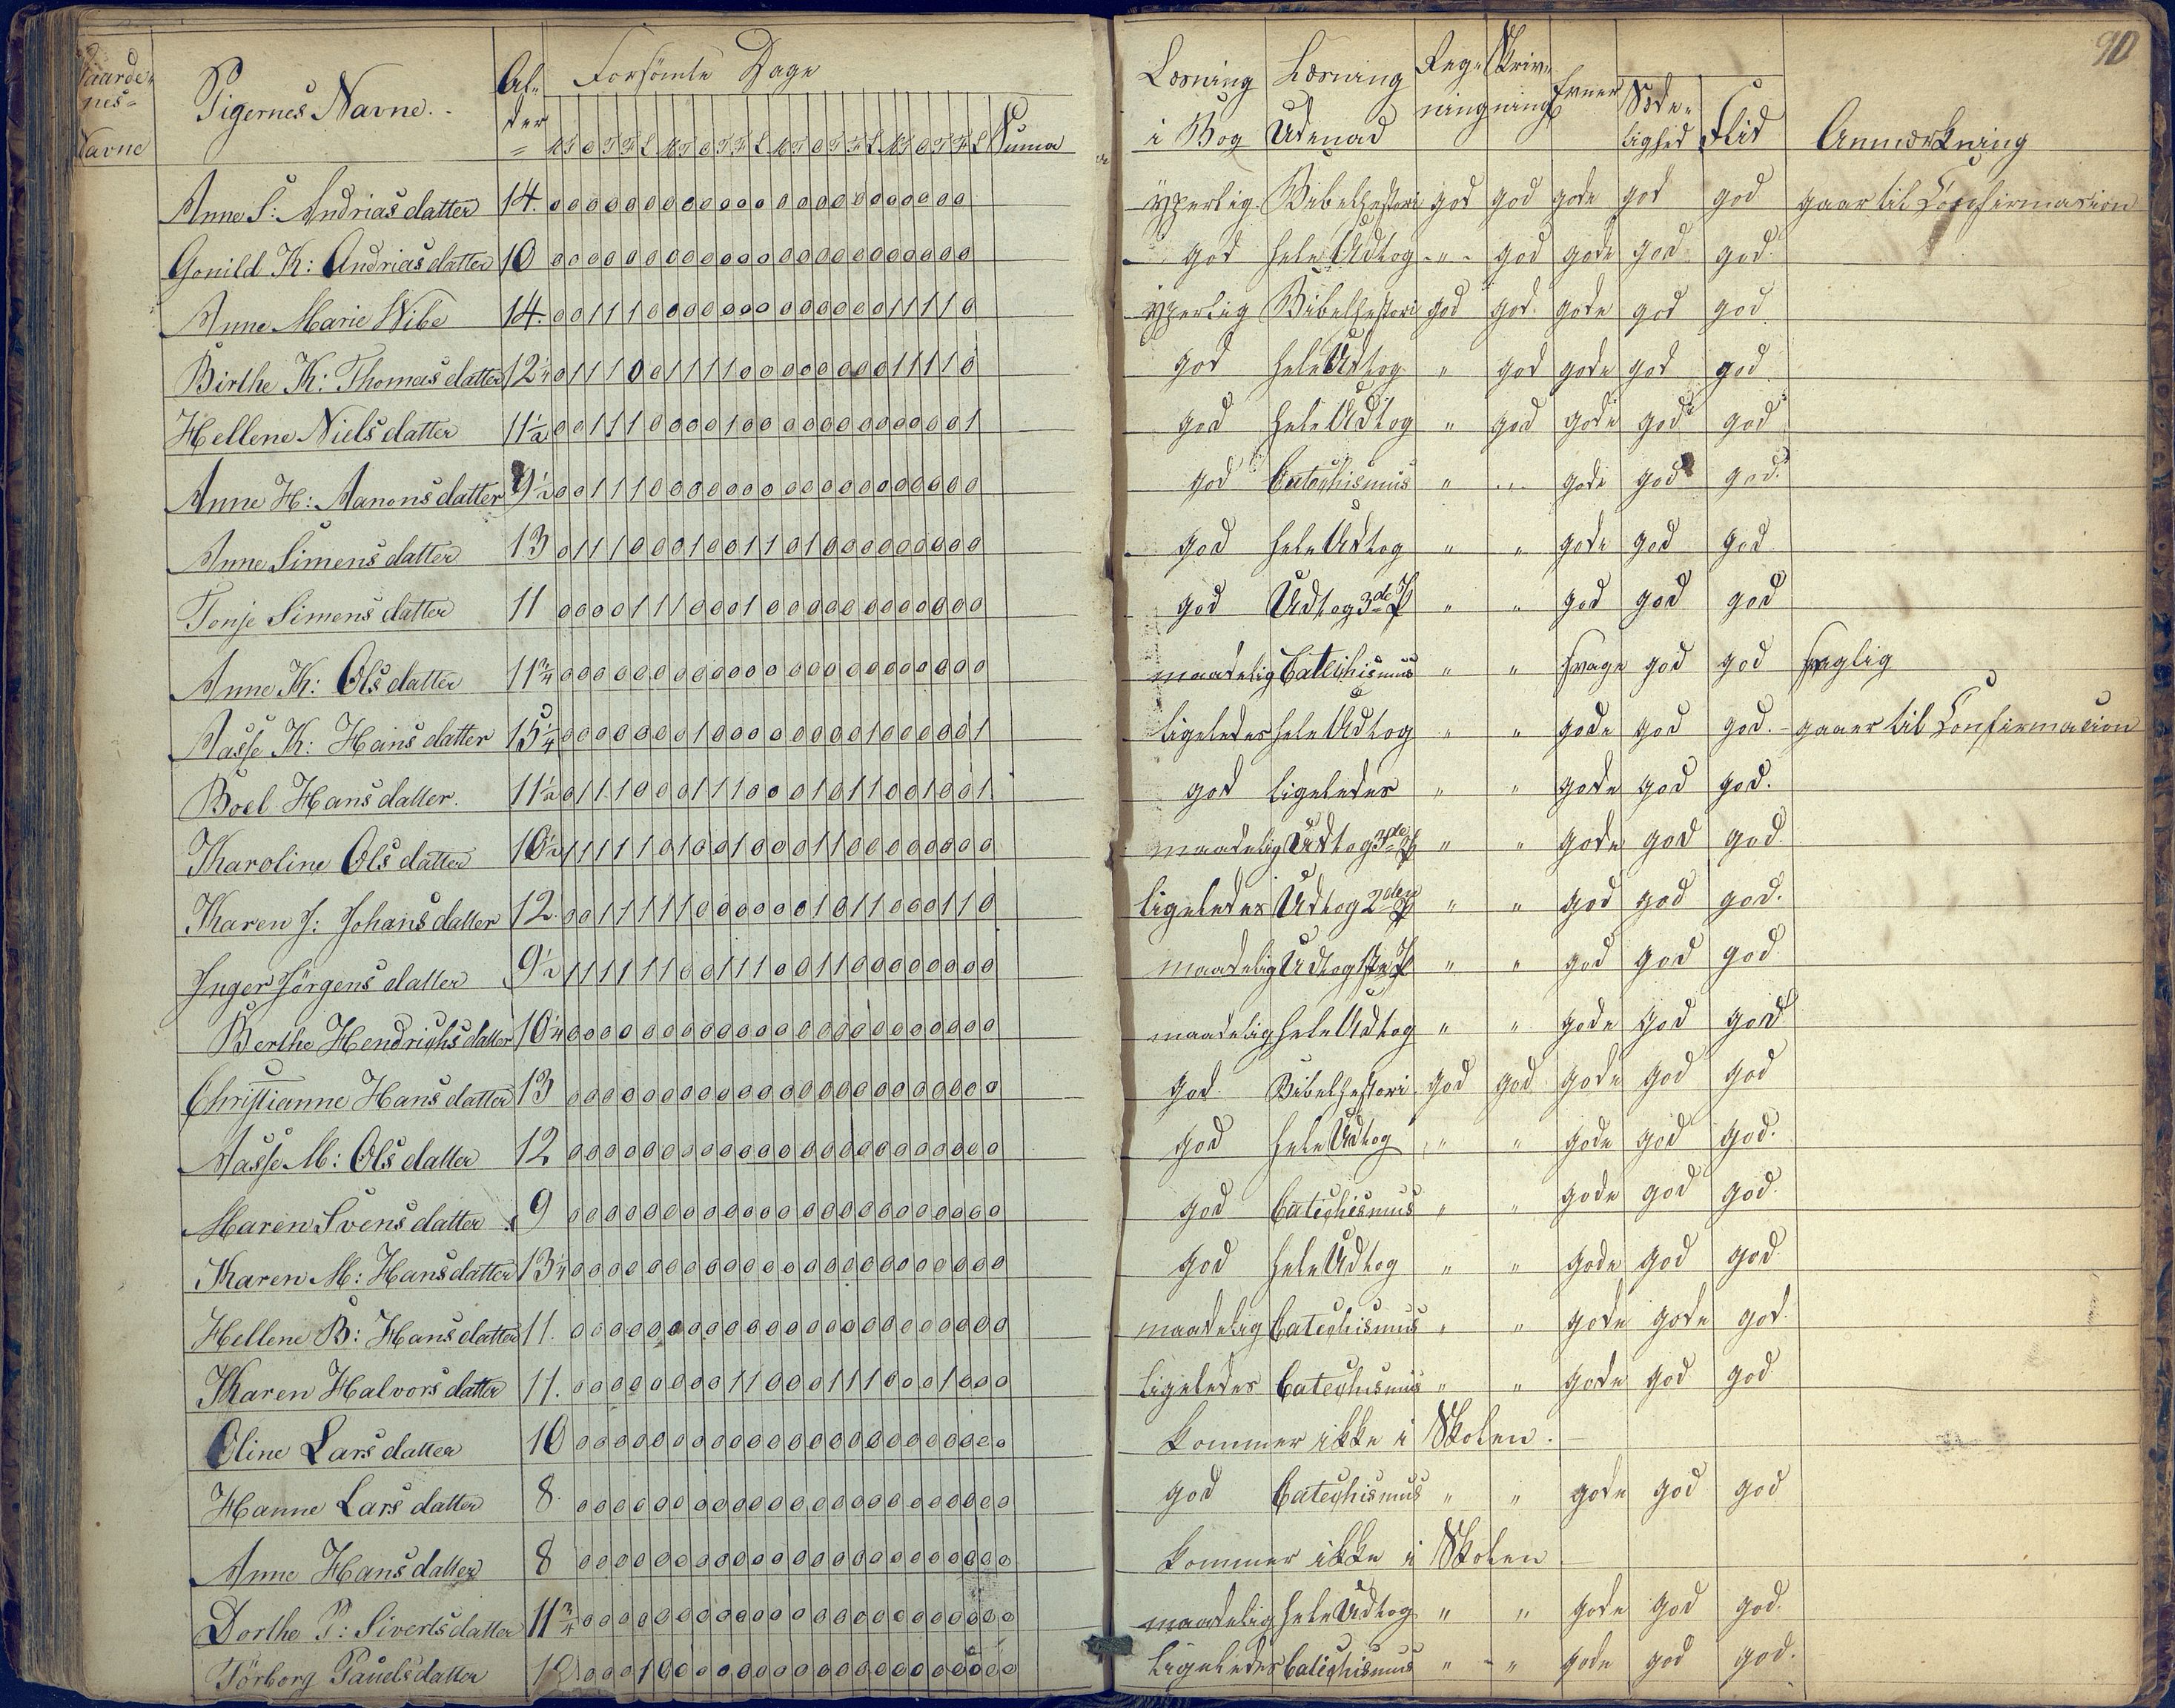 90
Gaarde-
nes-
Navne
Pigernes Navne.
Al-
der
Forsömte Dage
M T O T F L M T O T F L M T O T F L M T O T F L Suma
Læsning i Bog
Læsning Udenad
Reg-
ning
Skriv-
ning
Evner
Sæde-
lighed
Flid
Anmærkning
Anne S: Andrias datter 14. 0 0 0 0 0 0 0 0 0 0 0 0 0 0 0 0 0 0 0 0 0 0 0 0 yperlig Bibelhestori god god gode god god gaar til Confirmasion
Gonild K: Andrias datter 10 0 0 0 0 0 0 0 0 0 0 0 0 0 0 0 0 0 0 0 0 0 0 0 0 god hele Udtog - " - god gode god god.
Anne Marie Wibe 14. 0 0 1 1 1 0 0 0 0 0 0 0 0 0 0 0 0 0 0 1 1 1 1 0 yperlig Bibelhestori god god. gode god god
Birthe K: Thomas datter 12 1/4 0 1 1 1 0 0 1 1 1 1 0 0 0 0 0 0 0 0 0 1 1 1 1 0 god hele Udtog " god gode god god
Hellene Niels datter 11 1/2 0 0 1 1 1 0 0 0 0 1 0 0 0 0 0 0 0 0 0 0 0 0 0 1 god hele Udtog " god gode god god
Anne H: Aanons datter 9 1/2 0 0 1 1 1 0 0 0 0 0 0 0 0 0 0 0 0 0 0 0 0 0 0 0 god Catechismus " " gode god god.
Anne Simens datter 13 0 1 1 1 0 0 0 1 0 0 1 1 0 1 0 0 0 0 0 0 0 0 0 0 god hele Udtog " " gode god god
Tonje Simens datter 11 0 0 0 0 1 1 1 0 0 0 1 0 0 0 0 0 0 0 0 0 0 0 0 0 god Udtog 3de P " " god god god
Anne K: Ols datter 11 3/4 0 0 0 0 0 0 0 0 0 0 0 0 0 0 0 0 0 0 0 0 0 0 0 0 maadelig Catechismus " " svage god god syglig
Aasse K: Hans datter 15 1/4 0 0 0 0 0 0 0 1 0 0 0 0 0 0 0 0 0 1 0 0 0 0 0 1 ligeledes hele Udtog " " gode god god. - gaaer til Confirmacion
Boel Hans datter. 11 1/2 0 1 1 1 0 0 0 1 1 1 0 0 0 0 1 0 1 1 0 0 1 0 0 1 god ligeledes " " gode god god.
Karoline Ols datter 10 1/2 1 1 1 1 1 0 1 0 0 1 0 0 0 1 1 0 0 0 0 0 0 0 0 0 maadelig Udtog 3de P " " gode god god.
Karen J: Johans datter 12. 0 0 1 1 1 1 1 0 0 0 0 0 0 1 0 1 1 0 0 0 1 1 0 ligeledes Udtog 2den P " " god god god.
Inger Jörgens datter 9 1/2 1 1 1 1 1 1 0 0 1 1 1 0 0 1 1 0 0 0 0 0 0 0 0 0 maadelig Udtog 1ste P " " god god god
Berthe Hendrichs datter 10 1/4 0 0 0 0 0 0 0 0 0 0 0 0 0 0 0 0 0 0 0 0 0 0 0 0 maadelig hele Udtog " " gode god god
Christianne Hans datter 13 0 0 0 0 0 0 0 0 0 0 0 0 0 0 0 0 0 0 0 0 0 0 0 0 god Bibelhestori god god gode god god
Aasse M: Ols datter 12 0 0 0 0 0 0 0 0 0 0 0 0 0 0 0 0 0 0 0 0 0 0 0 0 god hele Udtog " " gode god god.
Maren Svens datter 9 0 0 0 0 0 0 0 0 0 0 0 0 0 0 0 0 0 0 0 0 0 0 0 0 god Catechismus " " gode god god.
Karen M: Hans datter 13 1/4 0 0 0 0 0 0 0 0 0 0 0 0 0 0 0 0 0 0 0 0 0 0 0 0 god hele Udtog " " gode god god
Hellene B: Hans datter 11. 0 0 0 0 0 0 0 0 0 0 0 0 0 0 0 0 0 0 0 0 0 0 0 0 maadelig Catechismus " " gode gode god
Karen Halvors datter 11. 0 0 0 0 0 0 0 0 0 1 1 0 0 0 1 1 1 0 0 0 1 0 0 0 ligeledes Catechismus " " gode god god
Oline Lars datter 10 0 0 0 0 0 0 0 0 0 0 0 0 0 0 0 0 0 0 0 0 0 0 0 0 kommer ikke i Skolen.
Hanne Lars datter 8 0 0 0 0 0 0 0 0 0 0 0 0 0 0 0 0 0 0 0 0 0 0 0 0 god Catechismus " " gode god god
Anne Hans datter 8 0 0 0 0 0 0 0 0 0 0 0 0 0 0 0 0 0 0 0 0 0 0 0 0 kommer ikke i Skolen
Dorthe P: Siverts datter 11 3/4 0 0 0 0 0 0 0 0 0 0 0 0 0 0 0 0 0 0 0 0 0 0 0 0 maadelig hele Udtog " " gode god god.
Törborg Pauels datter 0 0 0 1 0 0 0 0 0 0 0 0 0 0 0 0 0 0 0 0 0 0 0 ligeledes Catechismus " " gode god god.